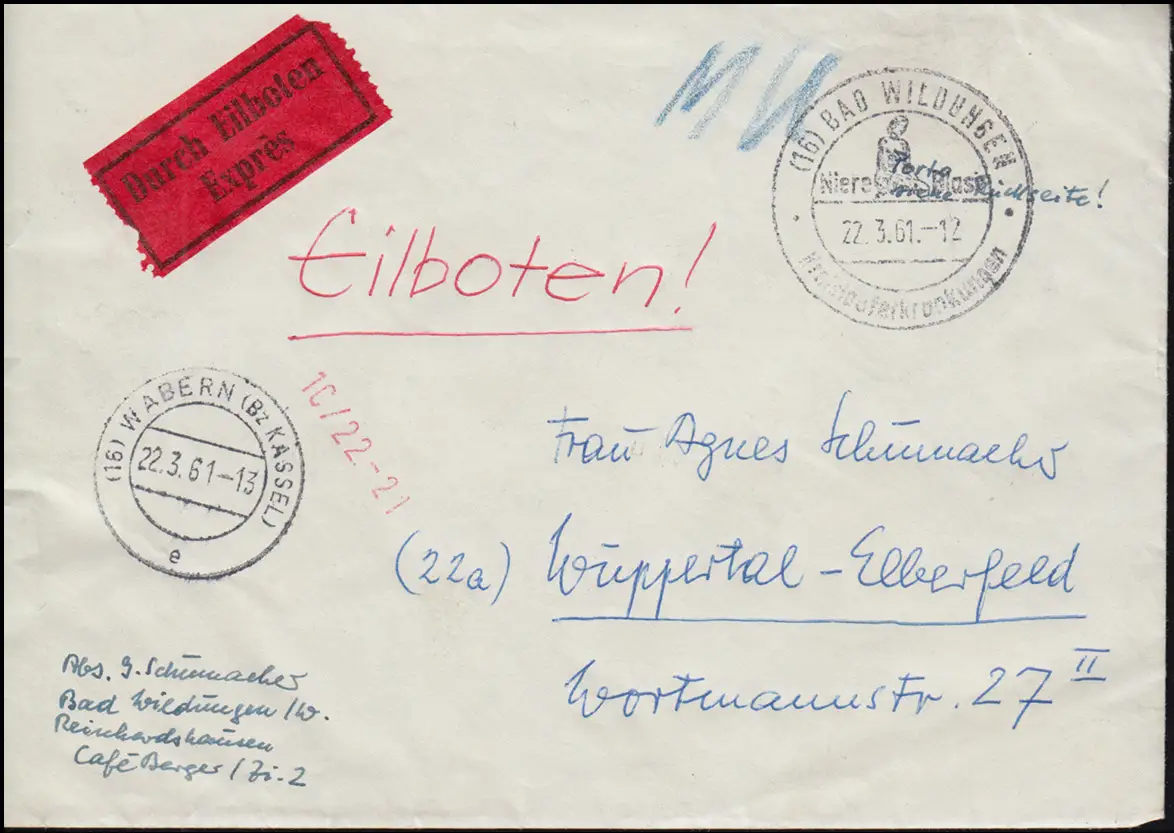 Durch Eilboten
Exprès
(16) BAD WILDUNGEN
Niere Blase
Porto
siehe Rückseite!
22.3.61.-12
Eilboten!
(16) WABERN (Bz KASSEL)
22.3.61-13
e
1C/22.-21
Frau Agnes Schumacher
(22a) Wuppertal-Elberfeld
Wortmannstr. 27 II
Abs. G. Schumacher
Bad Wildungen/W.
Reinhardshausen
Café Berger/Zi. 2